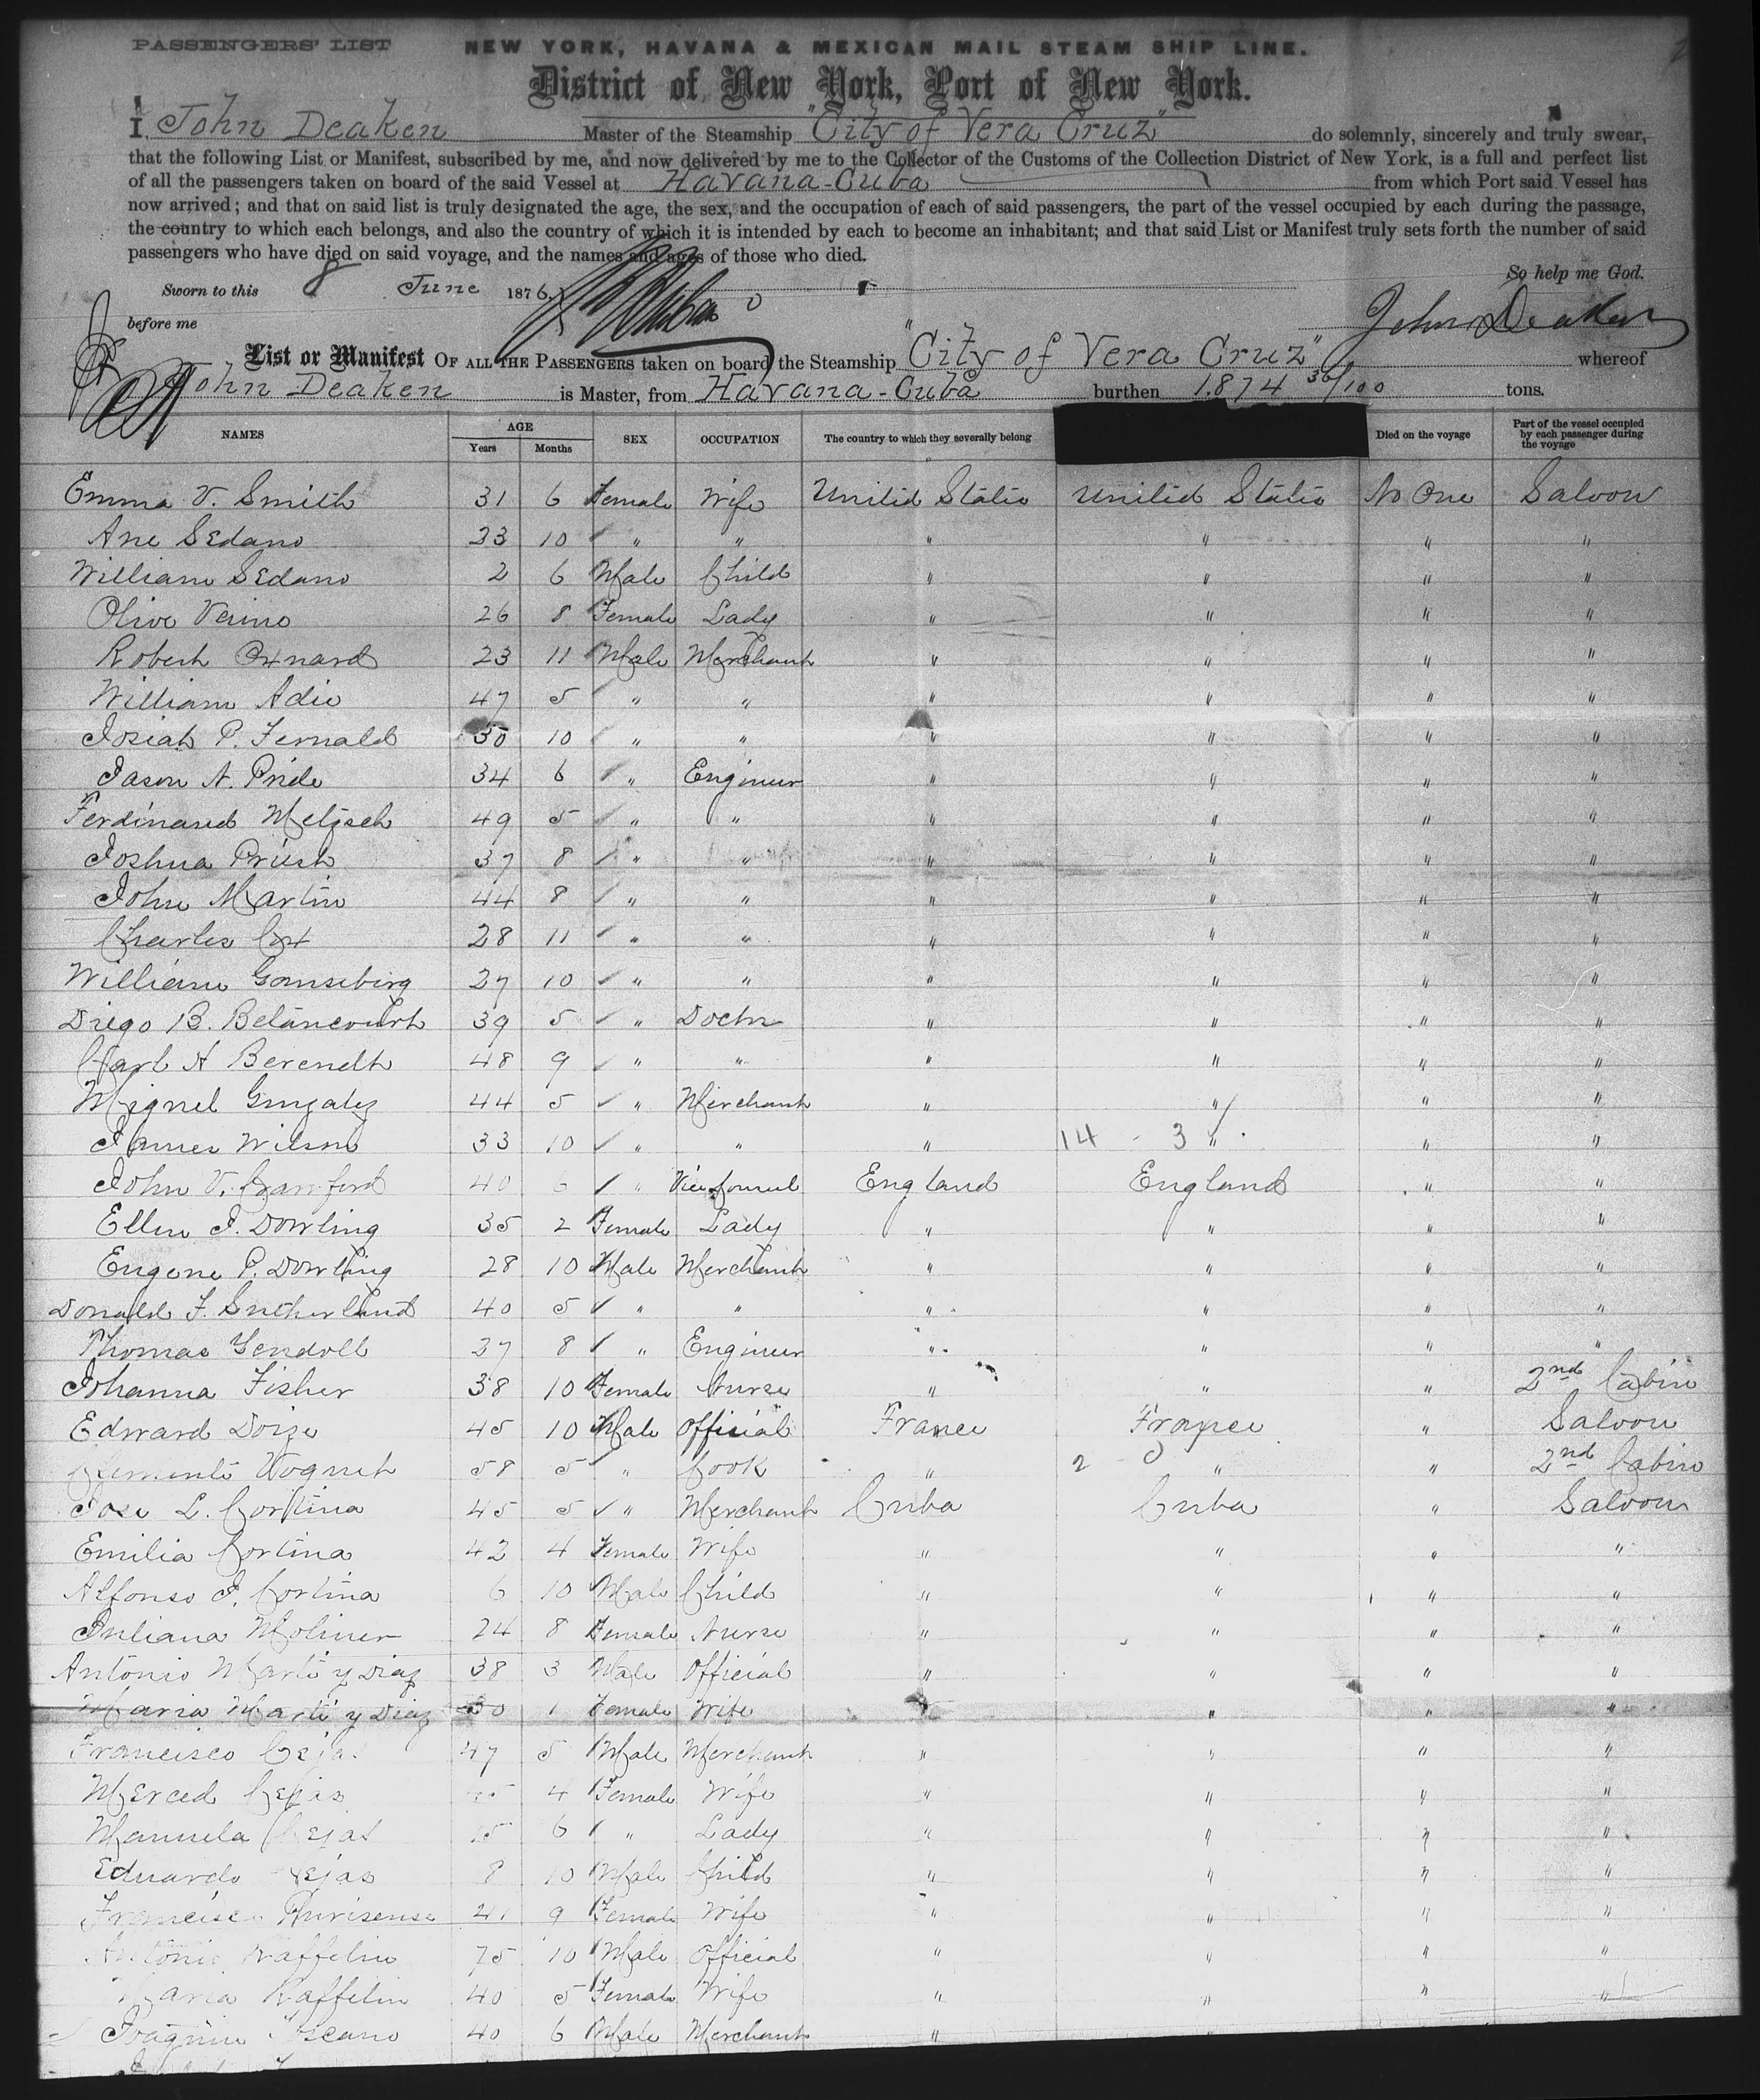 PASSENGERS' LIST NEW YORK, HAVANA & MEXICAN MAIL STEAM SHIP LINE.
District of New York, Port of New York.
I, John Deaken Master of the Steamship "City of Vera Cruz" do solemnly, sincerely and truly swear,
that the following List or Manifest, subscribed by me, and now delivered by me to the Collector of the Customs of the Collection District of New York, is a full and perfect list
of all the passengers taken on board of the said Vessel at Havana-Cuba from which Port said Vessel has
now arrived; and that on said list is truly designated the age, the sex, and the occupation of each of said passengers, the part of the vessel occupied by each during the passage,
the country to which each belongs, and also the country of which it is intended by each to become an inhabitant; and that said List or Manifest truly sets forth the number of said
passengers who have died on said voyage, and the names and ages of those who died.
So help me God.
Sworn to this 8 June 1876,
before me John Deaken
List or Manifest OF ALL THE PASSENGERS taken on board the Steamship "City of Vera Cruz" whereof
John Deaken is Master, from Havana-Cuba burthen 1.874 36/100 tons.
NAMES AGE Years Months SEX OCCUPATION The country to which they severally belong Died on the voyage Part of the vessel occupied by each passenger during the voyage
Emma V. Smith 31 6 Female Wife United States United States No One Saloon
Ane Sedano 23 10 " " " " " "
William Sedano 2 6 Male Child " " " "
Olive 26 8 Female Lady " " " "
Robert Oxnard 23 11 Male Merchant " " " "
William Adie 47 5 " " " " " "
Josiah P. Fernald 30 10 " " " " " "
Jason N. Pride 34 6 " Engineer " " " "
Ferdinand Metzsch 49 5 " " " " " "
Joshua Priest 37 8 " " " " " "
John Martin 44 8 " " " " " "
Charles Cox 28 11 " " " " " "
William 27 10 " " " " " "
Diego B. Betancourt 39 5 " Doctor " " " "
Carl H Berendt 48 9 " " " " " "
Miguel Gonzalez 44 5 " Merchant " " " "
James Wilson 33 10 " " " 14 - 3 " " "
John V. Crawford 40 6 " Vice Consul England England " "
Ellen J. Dowling 35 2 Female Lady " " " "
Eugene P. Dowling 28 10 Male Merchant " " " "
Donald F. Sutherland 40 5 " " " " " "
Thomas Gendoll 27 8 " Engineer " " " "
Johanna Fisher 38 10 Female Nurse " " " 2nd Cabin
Edward Doize 45 10 Male Official France France " Saloon
58 5 " Cook " 2 - 0 " " 2nd Cabin
Jose L. Cortina 45 5 " Merchant Cuba Cuba " Saloon
Emilia Cortina 42 4 Female Wife " " " "
Alfonso J. Cortina 6 10 Male Child " " " "
Juliana Moliner 24 8 Female Nurse " " " "
Antonio Marti y Diaz 38 3 Male Official " " " "
Maria Marti y Diaz 30 1 Female Wife " " " "
Francisco Cejas 47 5 Male Merchant " " " "
Merced Cejas 4 Female Wife " " " "
Manuela Cejas 15 6 " Lady " " " "
Eduardo Cejas 8 10 Male Child " " " "
Francisca 9 Female Wife " " " "
Antonio Raffelin 75 10 Male Official " " " "
Maria Raffelin 40 5 Female Wife " " " "
Joaquin Toscano 40 6 Male Merchant "